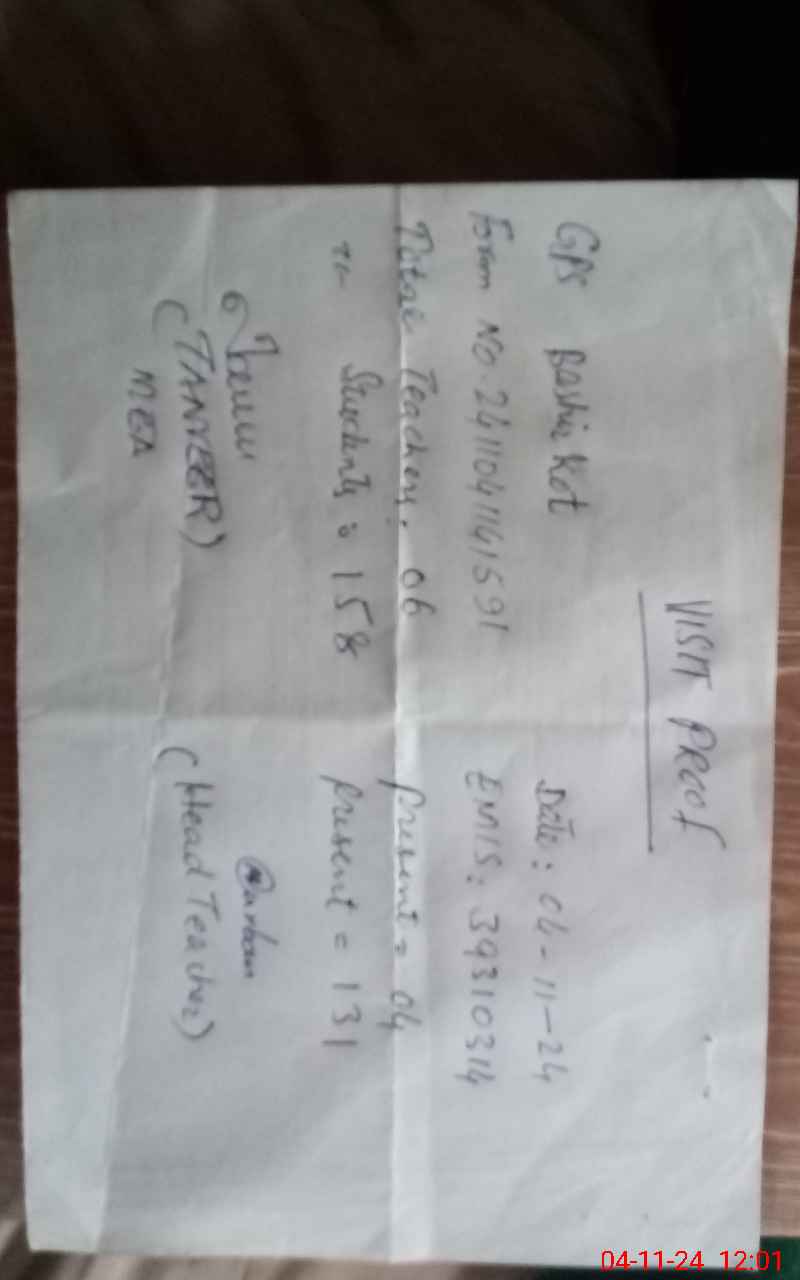 VISIT PROOF
GPS Bashir Kot Date: 04-11-24
Form No. 24110411 EMIS: 39310314
Total Teachers: 06 Present = 04
Students: 158 Present = 131
(TANVEER) (Head Teacher)
MEA
04-11-24 12:01